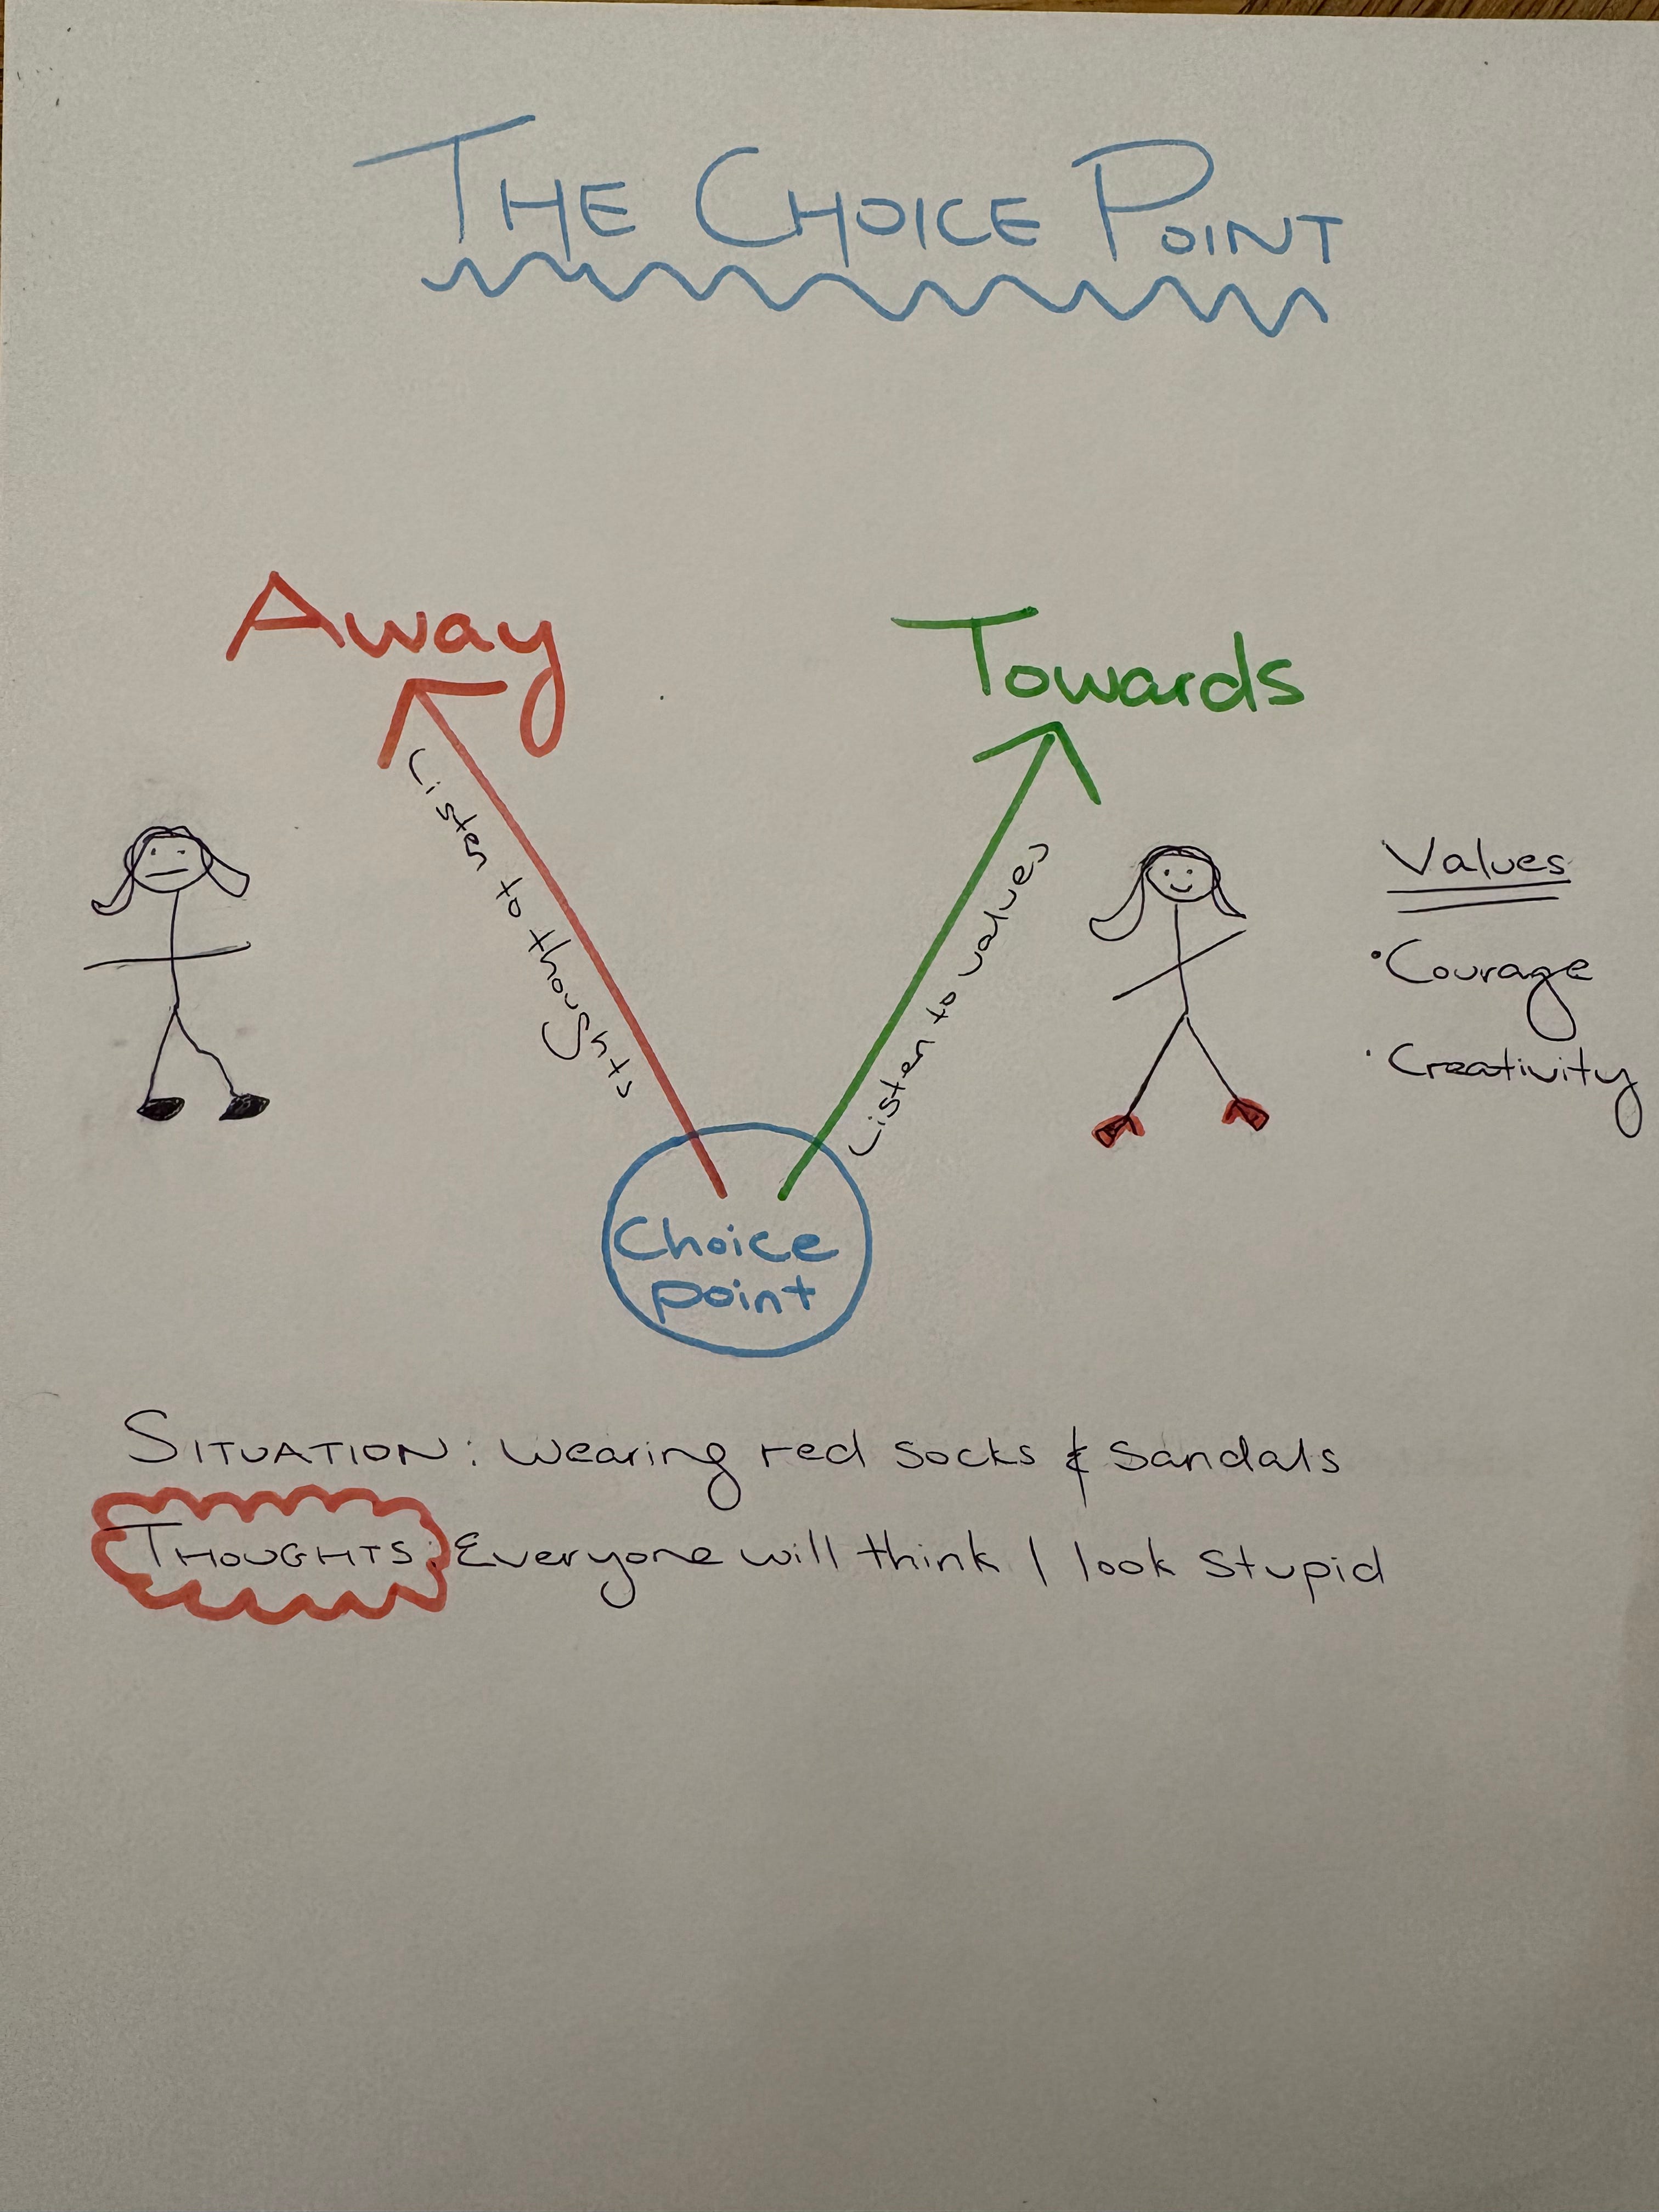 THE CHOICE POINT
Away
Towards
Listen to thoughts
Listen to values
Values
• Courage
• Creativity
Choice
point
SITUATION: Wearing red socks & sandals
THOUGHTS: Everyone will think I look stupid